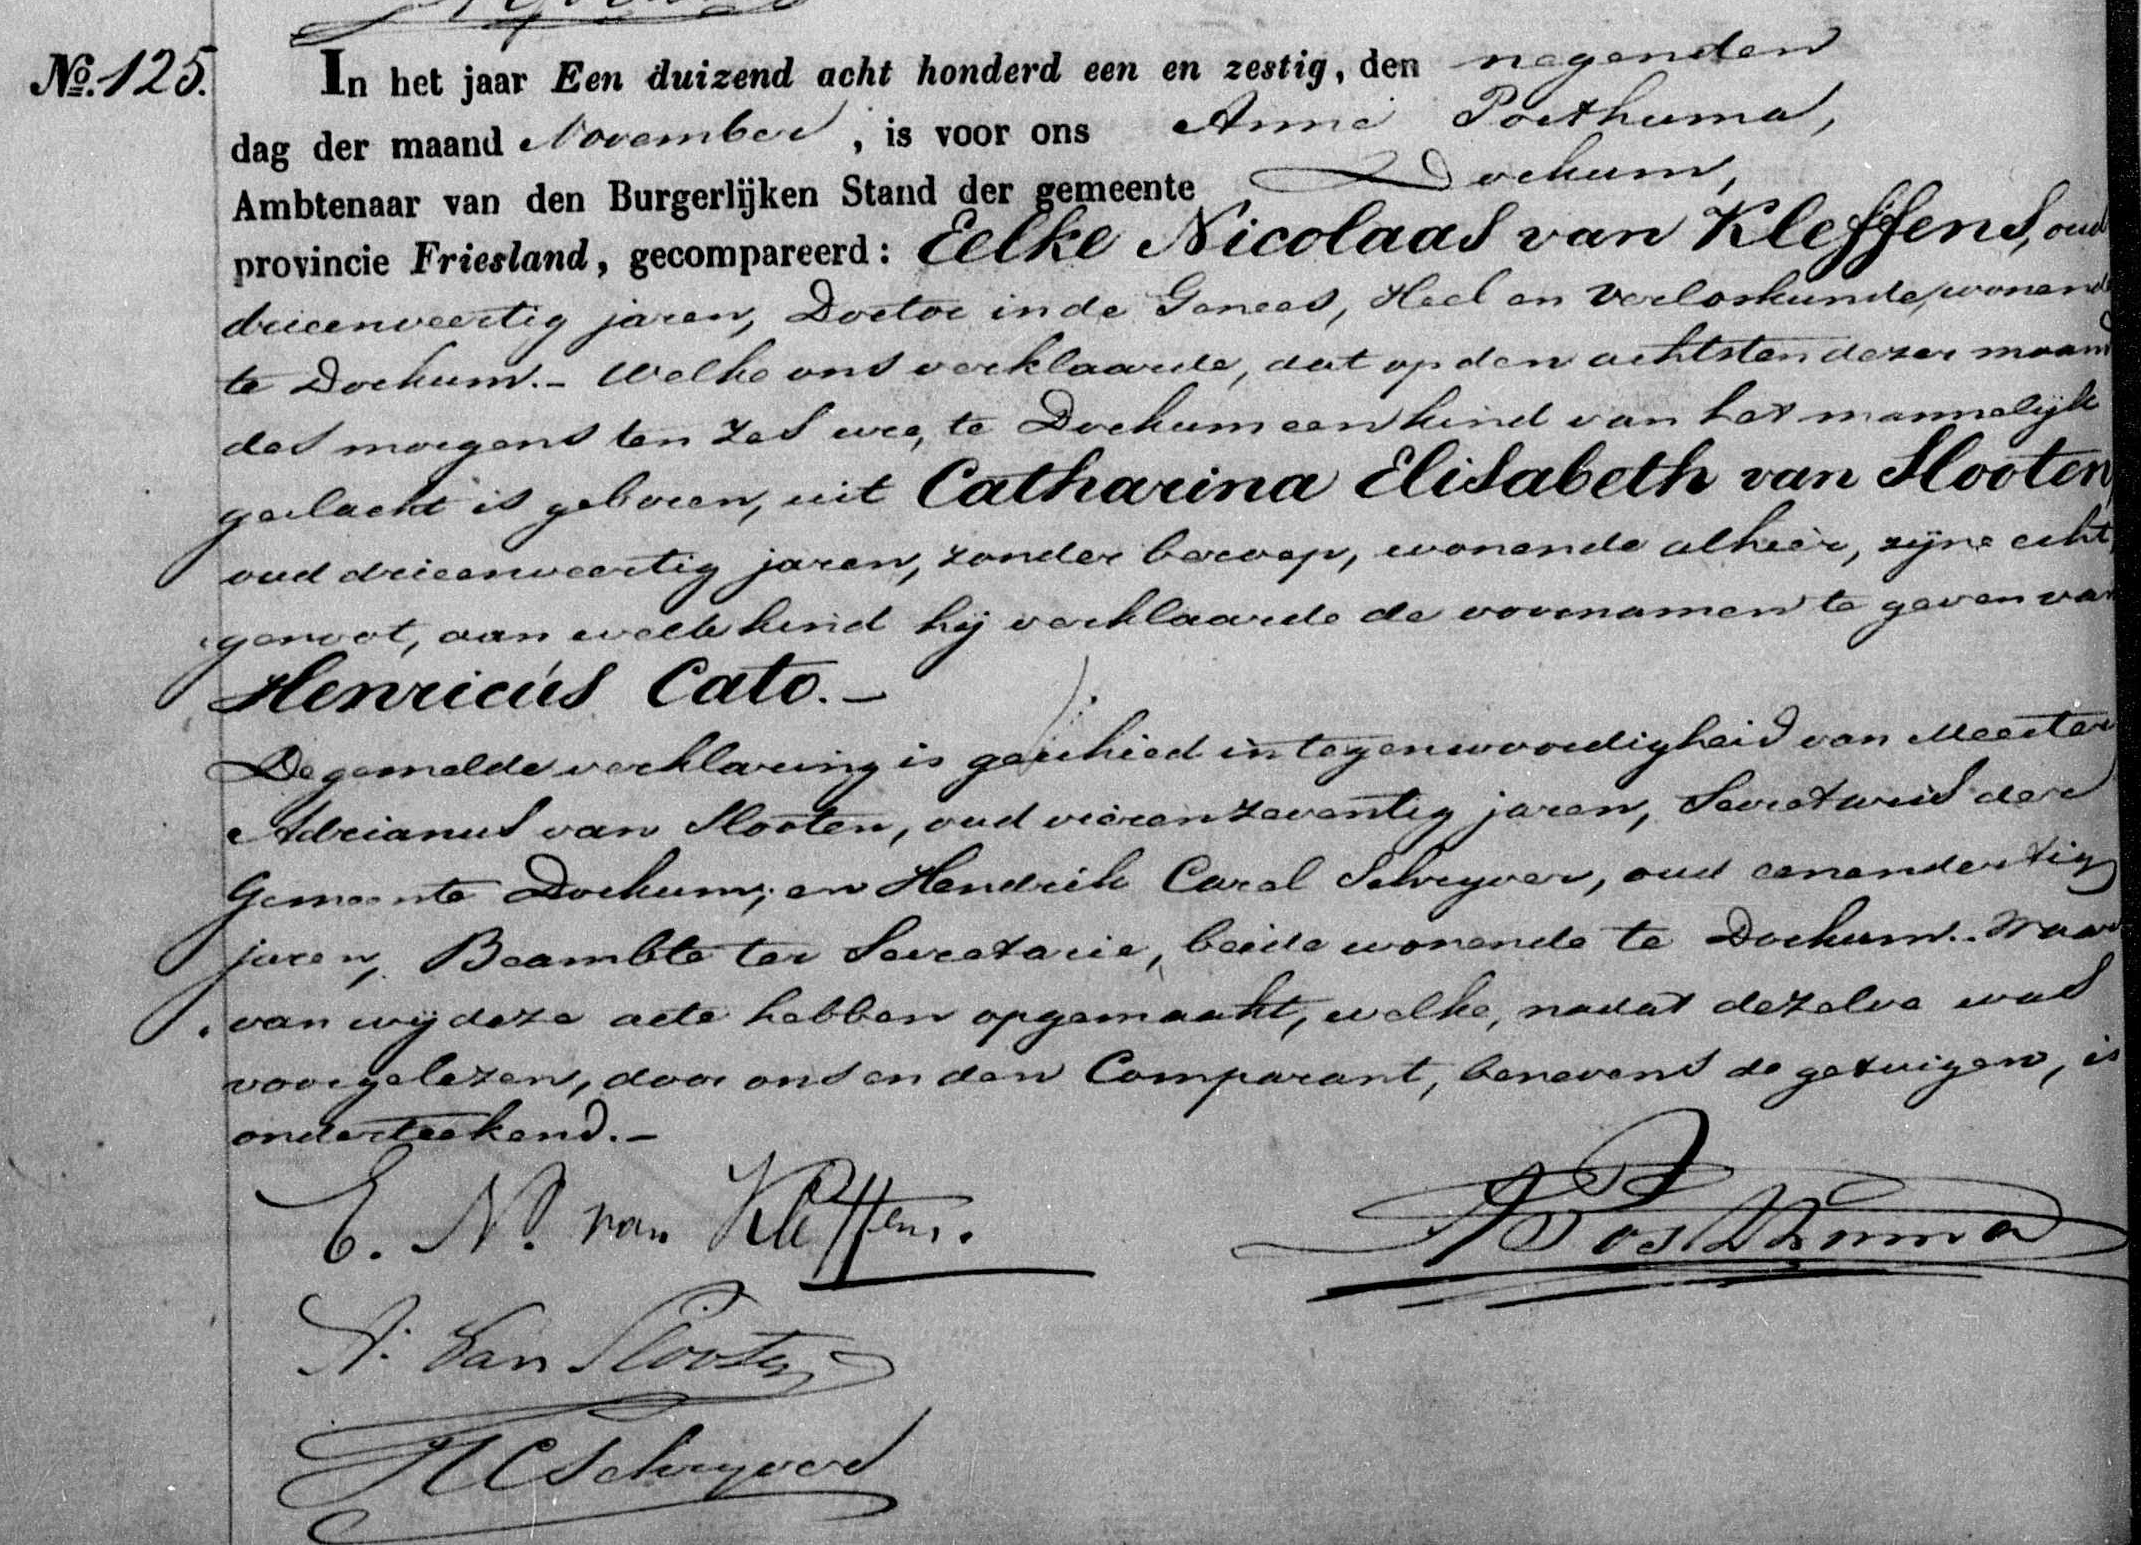 No. 125. In het jaar Een duizend acht honderd een en zestig, den negenden
dag der maand November, is voor ons Anne Posthuma,
Ambtenaar van den Burgerlijken Stand der gemeente Dockum,
provincie Friesland, gecompareerd: Eelke Nicolaas van Kleffens, oud
drieenveertig jaren, Doctor in de Genees, Heel en Verloskunde, wonende
te Dockum.- Welke ons verklaarde, dat op den achtsten dezer maand
des morgens ten zes ure, te Dockum een kind van het mannelijk
geslacht is geboren, uit Catharina Elisabeth van Slooten,
oud drieenveertig jaren, zonder beroep, wonende alhier, zijne echt
genoot, aan welk kind hij verklaarde de voornamen te geven van
Henricus Cato.-
De gemelde verklaring is geschied in tegenwoordigheid van Meester
Adrianus van Slooten, oud vierenzeventig jaren, Secretaris der
Gemeente Dockum; en Hendrik Carel Schryver, oud eenendertig
jaren, Beambte ter Secretarie, beide wonende te Dockum.. Waar
van wij deze acte hebben opgemaakt, welke, nadat dezelve was
voorgelezen, door ons en den Comparant, benevens de getuigen, is
onderteekend.-
E. N. van Kleffens.
A Posthuma
A. van Slooten
H C Schryver